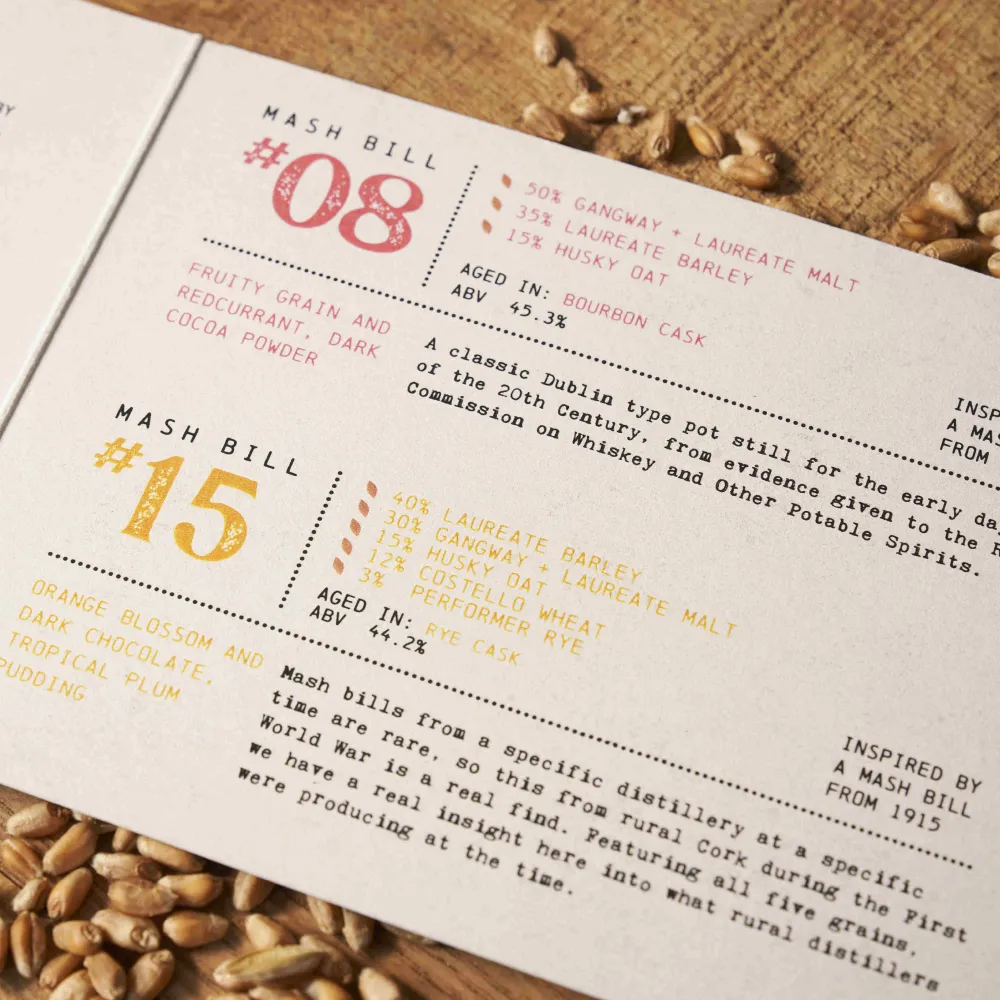 MASH BILL
#08
50% GANGWAY + LAUREATE MALT
35% LAUREATE BARLEY
15% HUSKY OAT
AGED IN: BOURBON CASK
ABV 45.3%
FRUITY GRAIN AND
REDCURRANT, DARK
COCOA POWDER
A MASH
FROM
A classic Dublin type pot still for the early
of the 20th Century, from evidence given to the
Commission on Whiskey and Other Potable Spirits.
MASH BILL
#15
40% LAUREATE BARLEY
30% GANGWAY + LAUREATE MALT
15% HUSKY OAT
12% COSTELLO WHEAT
3% PERFORMER RYE
AGED IN: RYE CASK
ABV 44.2%
ORANGE BLOSSOM AND
DARK CHOCOLATE,
TROPICAL PLUM
PUDDING
INSPIRED BY
A MASH BILL
FROM 1915
Mash bills from a specific distillery at a specific
time are rare, so this from rural Cork during the First
World War is a real find. Featuring all five grains,
we have a real insight here into what rural distillers
were producing at the time.